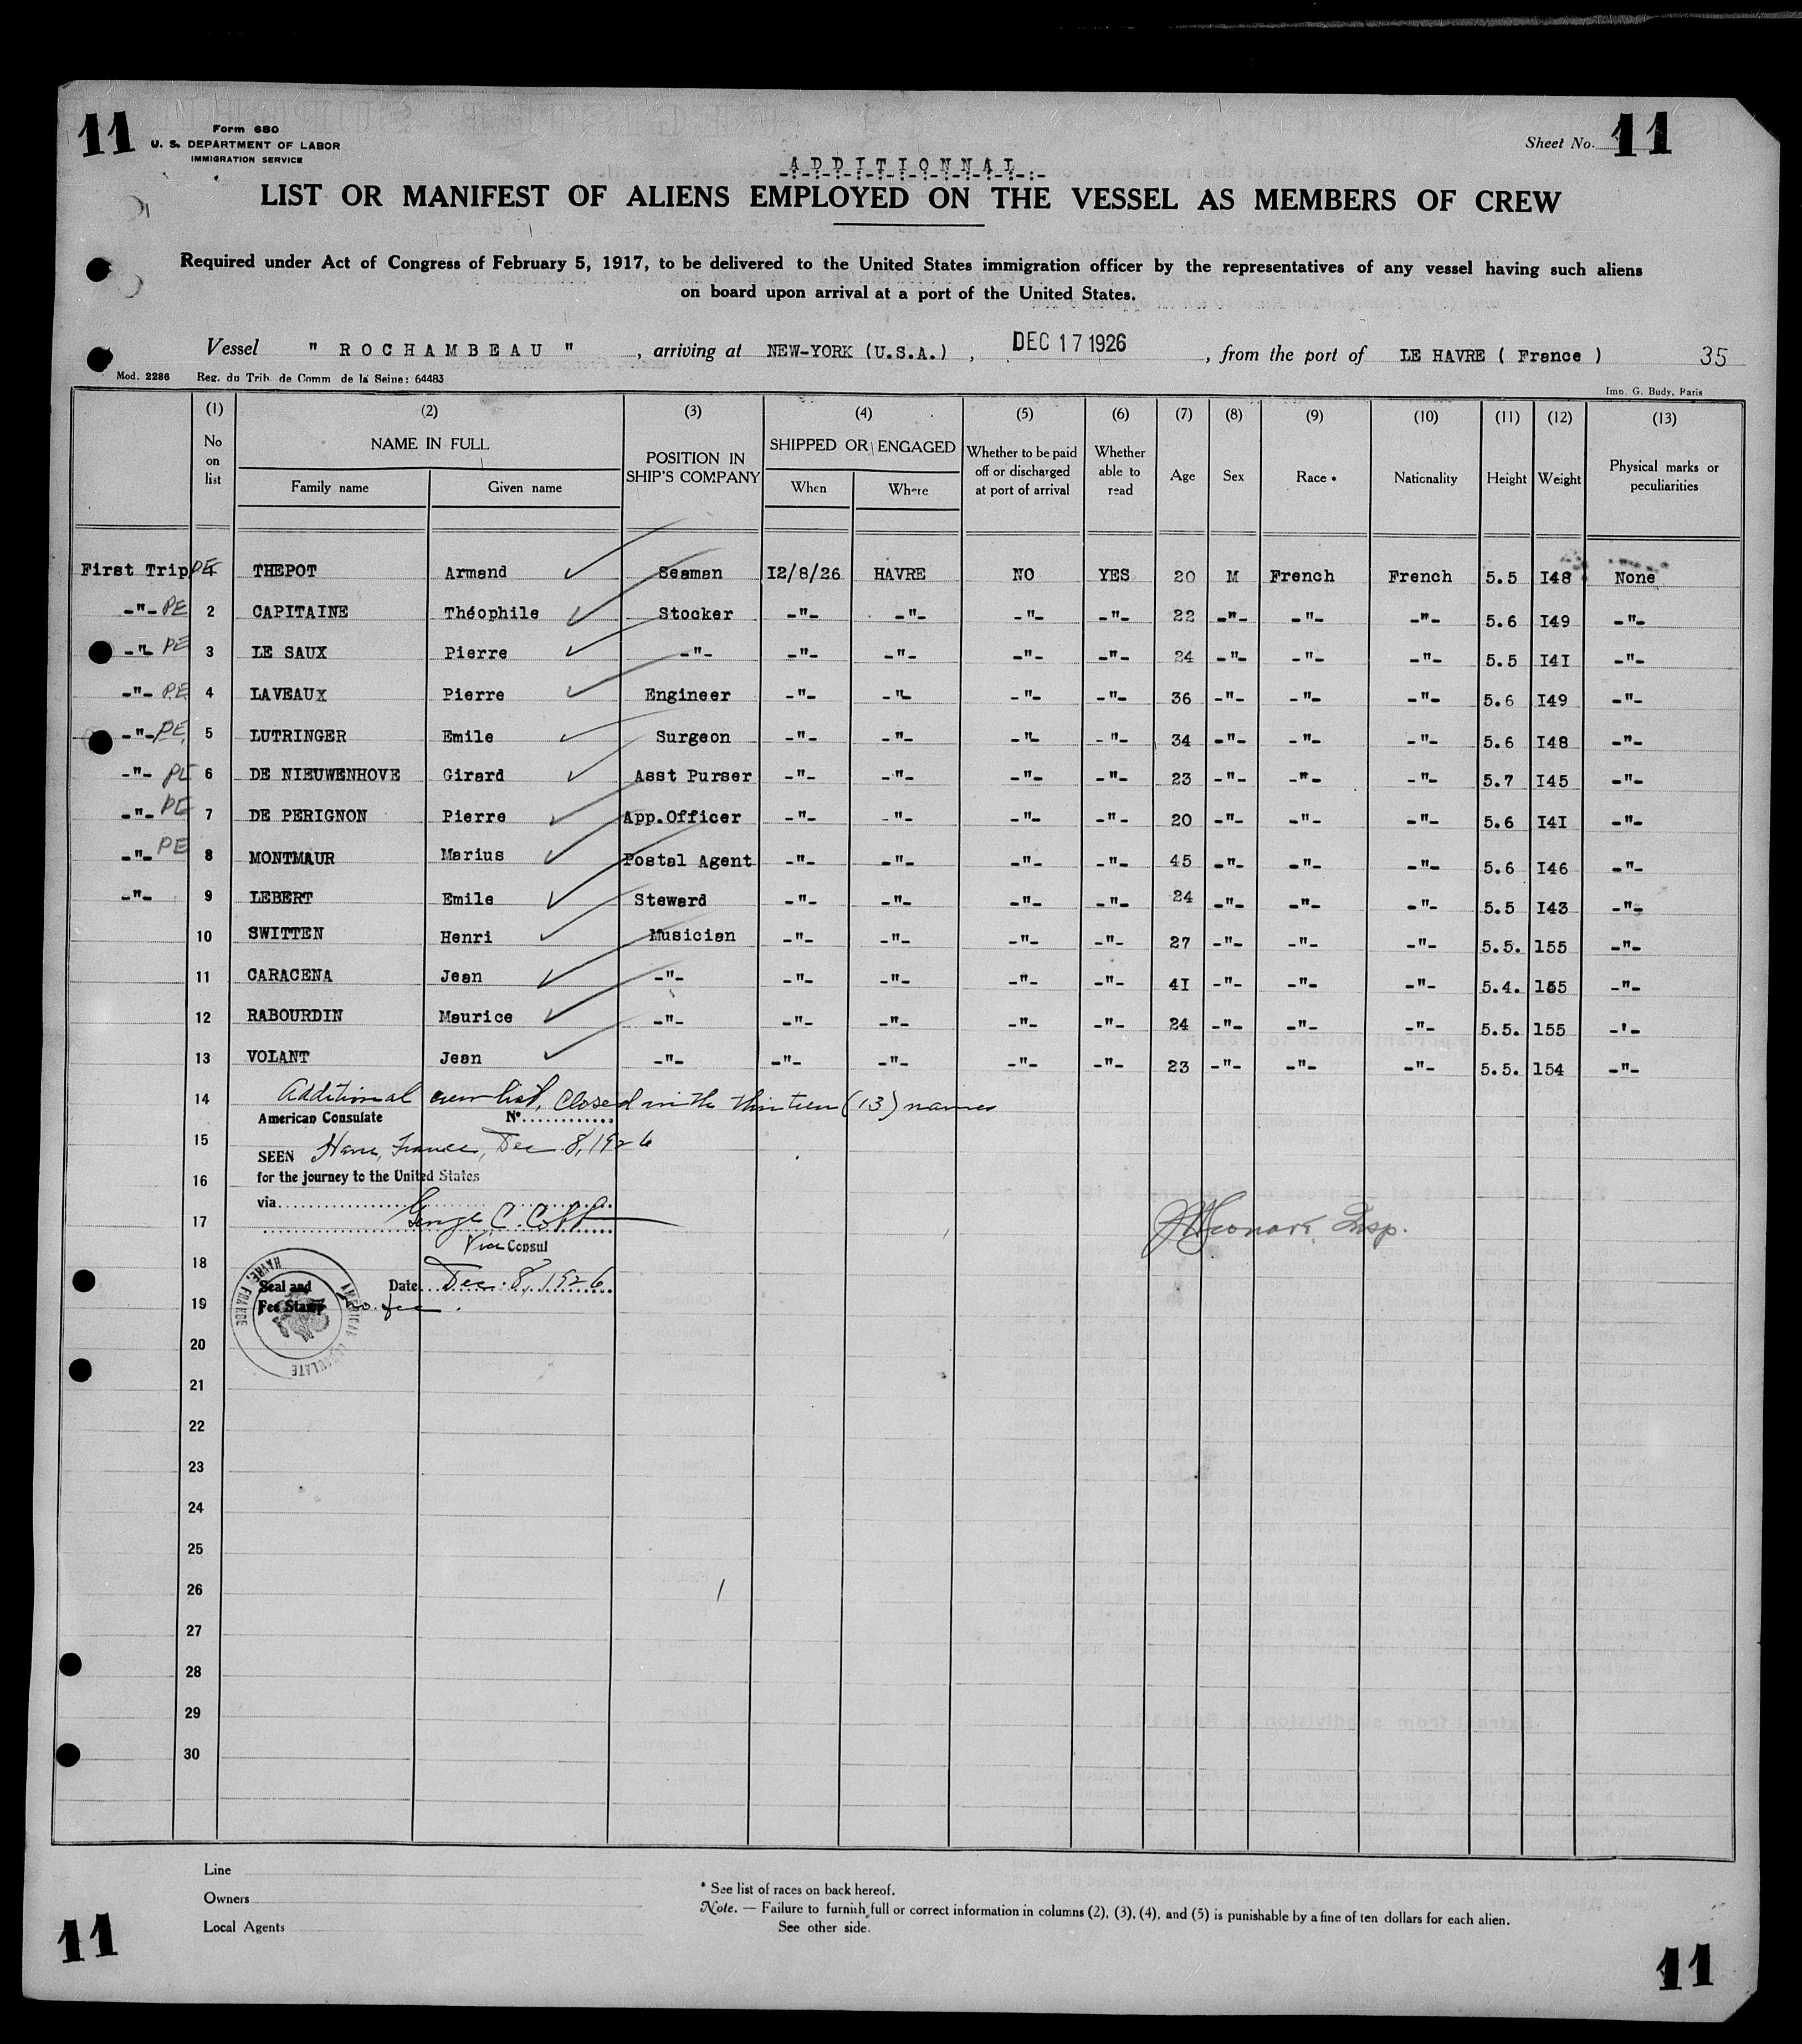 11
Form 680
U. S. DEPARTMENT OF LABOR
IMMIGRATION SERVICE
Sheet No. 11
ADDITIONNAL
LIST OR MANIFEST OF ALIENS EMPLOYED ON THE VESSEL AS MEMBERS OF CREW
Required under Act of Congress of February 5, 1917, to be delivered to the United States immigration officer by the representatives of any vessel having such aliens
on board upon arrival at a port of the United States.
Vessel " ROCHAMBEAU " , arriving at NEW-YORK (U.S.A.) , DEC 17 1926 , from the port of LE HAVRE ( France ) 35
Mod. 2286 Reg. du Trib. de Comm de la Seine: 64483 Imp. G. Budy, Paris
(1) (2) (3) (4) (5) (6) (7) (8) (9) (10) (11) (12) (13)
No on list NAME IN FULL Family name Given name POSITION IN SHIP'S COMPANY SHIPPED OR ENGAGED When Where Whether to be paid off or discharged at port of arrival Whether able to read Age Sex Race * Nationality Height Weight Physical marks or peculiarities
First Trip PE 1 THEPOT Armand Seaman I2/8/26 HAVRE NO YES 20 M French French 5.5 I48 None
-"- PE 2 CAPITAINE Théophile Stocker -"- -"- -"- -"- 22 -"- -"- -"- 5.6 I49 -"-
-"- PE 3 LE SAUX Pierre -"- -"- -"- -"- -"- 24 -"- -"- -"- 5.5 I4I -"-
-"- PE 4 LAVEAUX Pierre Engineer -"- -"- -"- -"- 36 -"- -"- -"- 5.6 I49 -"-
-"- PE 5 LUTRINGER Emile Surgeon -"- -"- -"- -"- 34 -"- -"- -"- 5.6 I48 -"-
-"- PE 6 DE NIEUWENHOVE Girard Asst Purser -"- -"- -"- -"- 23 -"- -"- -"- 5.7 I45 -"-
-"- PE 7 DE PERIGNON Pierre App.Officer -"- -"- -"- -"- 20 -"- -"- -"- 5.6 I4I -"-
-"- PE 8 MONTMAUR Marius Postal Agent -"- -"- -"- -"- 45 -"- -"- -"- 5.6 I46 -"-
-"- 9 LEBERT Emile Steward -"- -"- -"- -"- 24 -"- -"- -"- 5.5 I43 -"-
10 SWITTEN Henri Musician -"- -"- -"- -"- 27 -"- -"- -"- 5.5. 155 -"-
11 CARACENA Jean -"- -"- -"- -"- -"- 4I -"- -"- -"- 5.4. 155 -"-
12 RABOURDIN Maurice -"- -"- -"- -"- -"- 24 -"- -"- -"- 5.5. 155 -'-
13 VOLANT Jean -"- -"- -"- -"- -"- 23 -"- -"- -"- 5.5. 154 -"-
14 Additional crew list, closed with thirteen (13) names
American Consulate No.
15 SEEN Havre, France, Dec 8, 1926
16 for the journey to the United States
via
17 George C. Cobb
Vice Consul
18
Seal and Date Dec. 8, 1926
19 Fee Stamp No fee.
AMERICAN CONSULATE HAVRE, FRANCE
Insp.
20
21
22
23
24
25
26
27
28
29
30
Line
Owners
Local Agents
* See list of races on back hereof.
Note. — Failure to furnish full or correct information in columns (2), (3), (4), and (5) is punishable by a fine of ten dollars for each alien.
See other side.
11
11